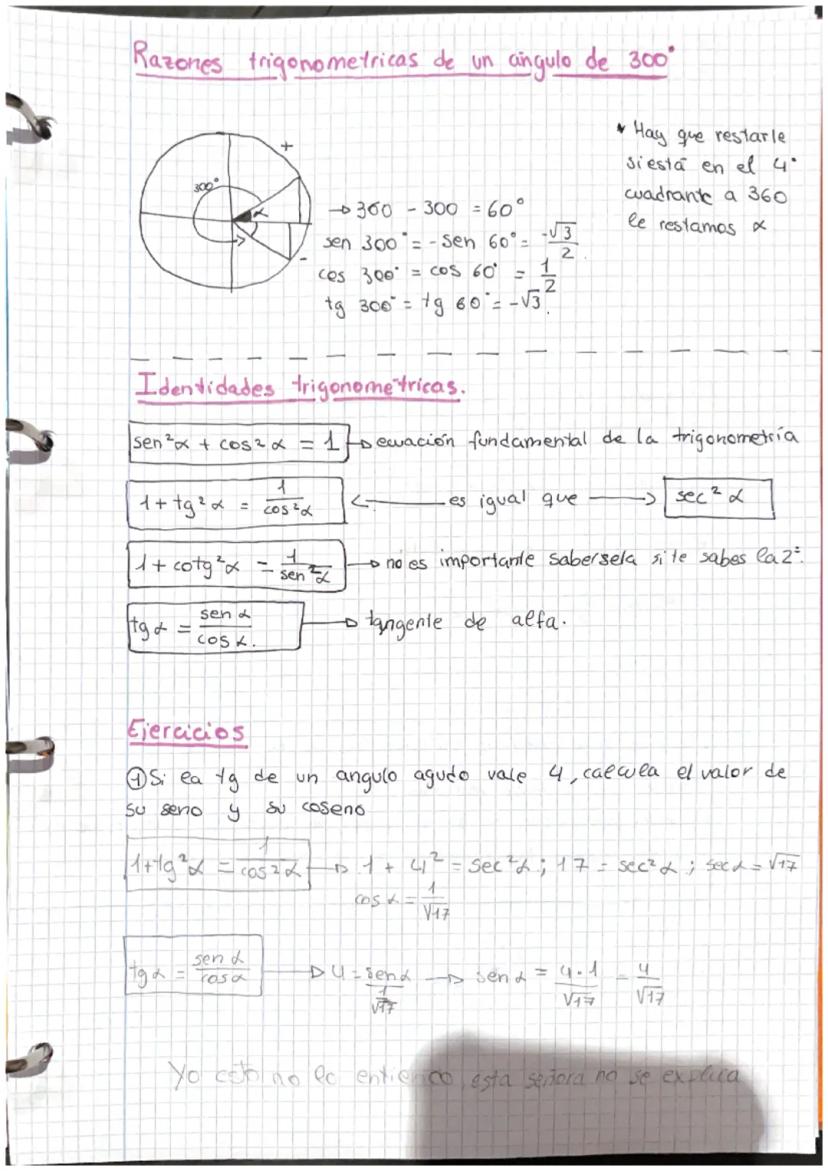 Razones trigonometricas de un ángulo de 300°
300°
α
+
-
* Hay que restarle
si está en el 4°
cuadrante a 360
le restamos α
→ 360 - 300 = 60°
sen 300° = - sen 60° = -√3/2
cos 300° = cos 60° = 1/2
tg 300° = tg 60° = -√3
Identidades trigonométricas.
sen²α + cos²α = 1 → ecuación fundamental de la trigonometría
1 + tg²α = 1/cos²α ← es igual que → sec²α
1 + cotg²α = 1/sen²α → no es importante sabersela si te sabes la 2ª.
tgα = sen α/cos α. → tangente de alfa.
Ejercicios
① Si la tg de un angulo agudo vale 4, calcula el valor de
su seno y su coseno
1+tg²α = 1/cos²α → 1 + 4² = sec²α ; 17 = sec²α ; secα = √17
cos α = 1/√17
tgα = sen α/cosα → 4 = senα/(1/√17) → senα = 4·1/√17 = 4/√17
Yo esto no lo entiendo, esta señora no se explica